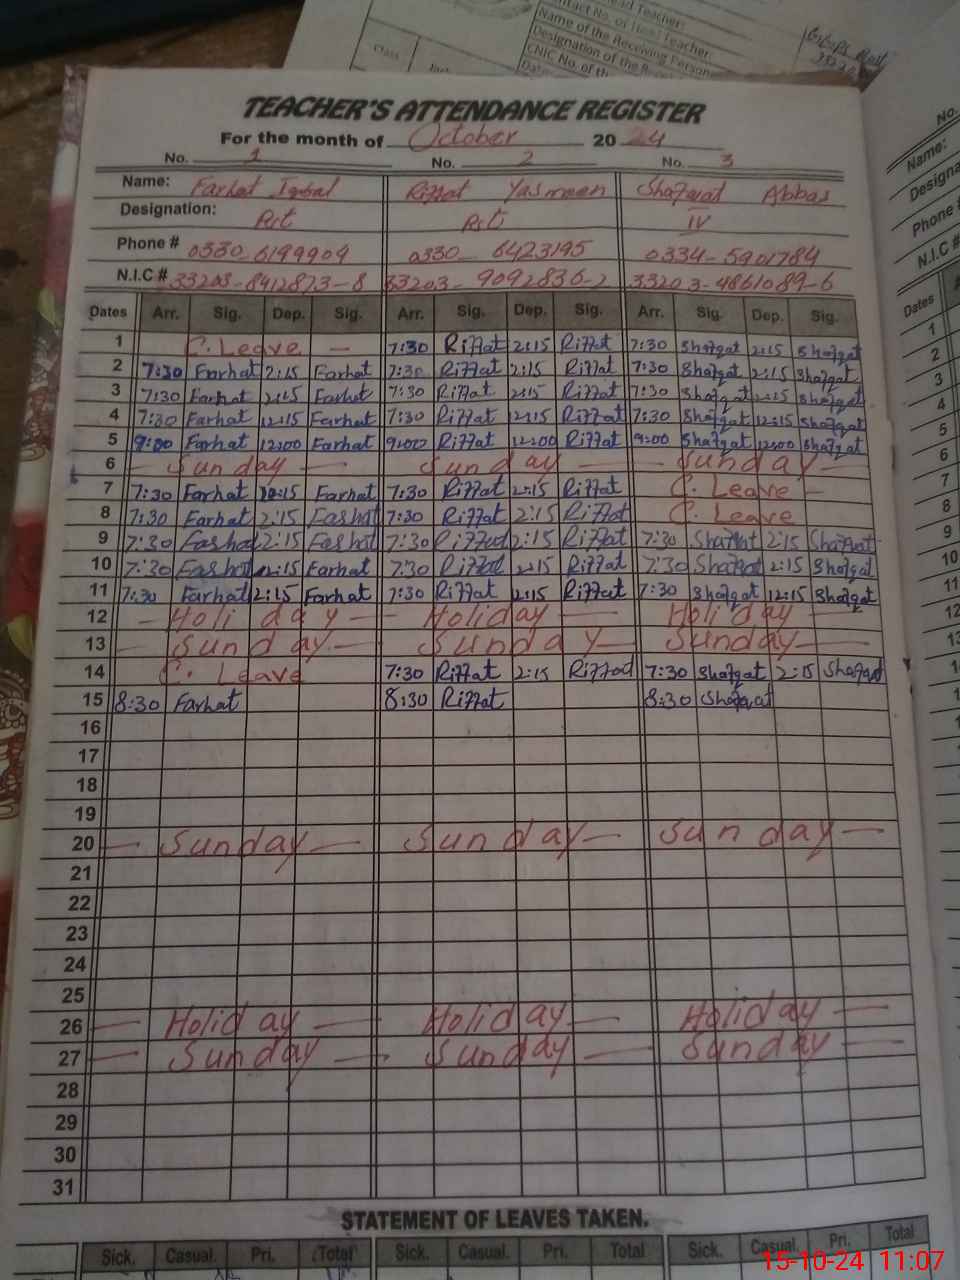 ead Teacher:
ntact No. of Head Teacher:
Name of the Receiving Person
Designation of the Re
CNIC No. of th
Date
Class
TEACHER'S ATTENDANCE REGISTER
For the month of October 2024
No. 1 No. 2 No. 3 No.
Name: Farhat Iqbal Riffat Yasmeen Shafqat Abbas Name:
Designation: Pst Pst IV Designa
Phone # 0330 6199909 0330 6423195 0334-5901784 Phone #
N.I.C # 33203-8412873-8 33203-9092836-2 33203-4861089-6 N.I.C #
Dates Arr. Sig. Dep. Sig. Arr. Sig. Dep. Sig. Arr. Sig. Dep. Sig. Dates
1 C. Leave — 7:30 Riffat 2:15 Riffat 7:30 Shafqat 2:15 Shafqat 1
2 7:30 Farhat 2:15 Farhat 7:30 Riffat 2:15 Riffat 7:30 Shafqat 2:15 Shafqat 2
3 7:30 Farhat 2:15 Farhat 7:30 Riffat 2:15 Riffat 7:30 Shafqat 2:15 Shafqat 3
4 7:30 Farhat 12:15 Farhat 7:30 Riffat 12:15 Riffat 7:30 Shafqat 12:15 Shafqat 4
5 9:00 Farhat 12:00 Farhat 9:00 Riffat 12:00 Riffat 9:00 Shafqat 12:00 Shafqat 5
6 — Sunday — Sunday — Sunday — 6
7 7:30 Farhat Farhat 7:30 Riffat 2:15 Riffat C. Leave — 7
8 7:30 Farhat 2:15 Farhat 7:30 Riffat 2:15 Riffat C. Leave 8
9 7:30 Farhat 2:15 Farhat 7:30 Riffat 2:15 Riffat 7:30 Shafqat 2:15 Shafqat 9
10 7:30 Farhat Farhat 7:30 Riffat 2:15 Riffat 7:30 Shafqat 2:15 Shafqat 10
11 7:30 Farhat 12:15 Farhat 7:30 Riffat 12:15 Riffat 7:30 Shafqat 12:15 Shafqat 11
12 — Holiday — Holiday — Holiday — 12
13 — Sunday — Sunday — Sunday — 13
14 C. Leave 7:30 Riffat 2:15 Riffat 7:30 Shafqat 2:15 Shafqat
15 8:30 Farhat 8:30 Riffat 8:30 Shafqat
16
17
18
19
20 — Sunday — Sunday — Sunday —
21
22
23
24
25
26 — Holiday — Holiday — Holiday —
27 — Sunday — Sunday — Sunday —
28
29
30
31
STATEMENT OF LEAVES TAKEN.
Sick. Casual. Pri. Total Sick. Casual. Pri. Total Sick. Casual. Pri. Total
15-10-24 11:07